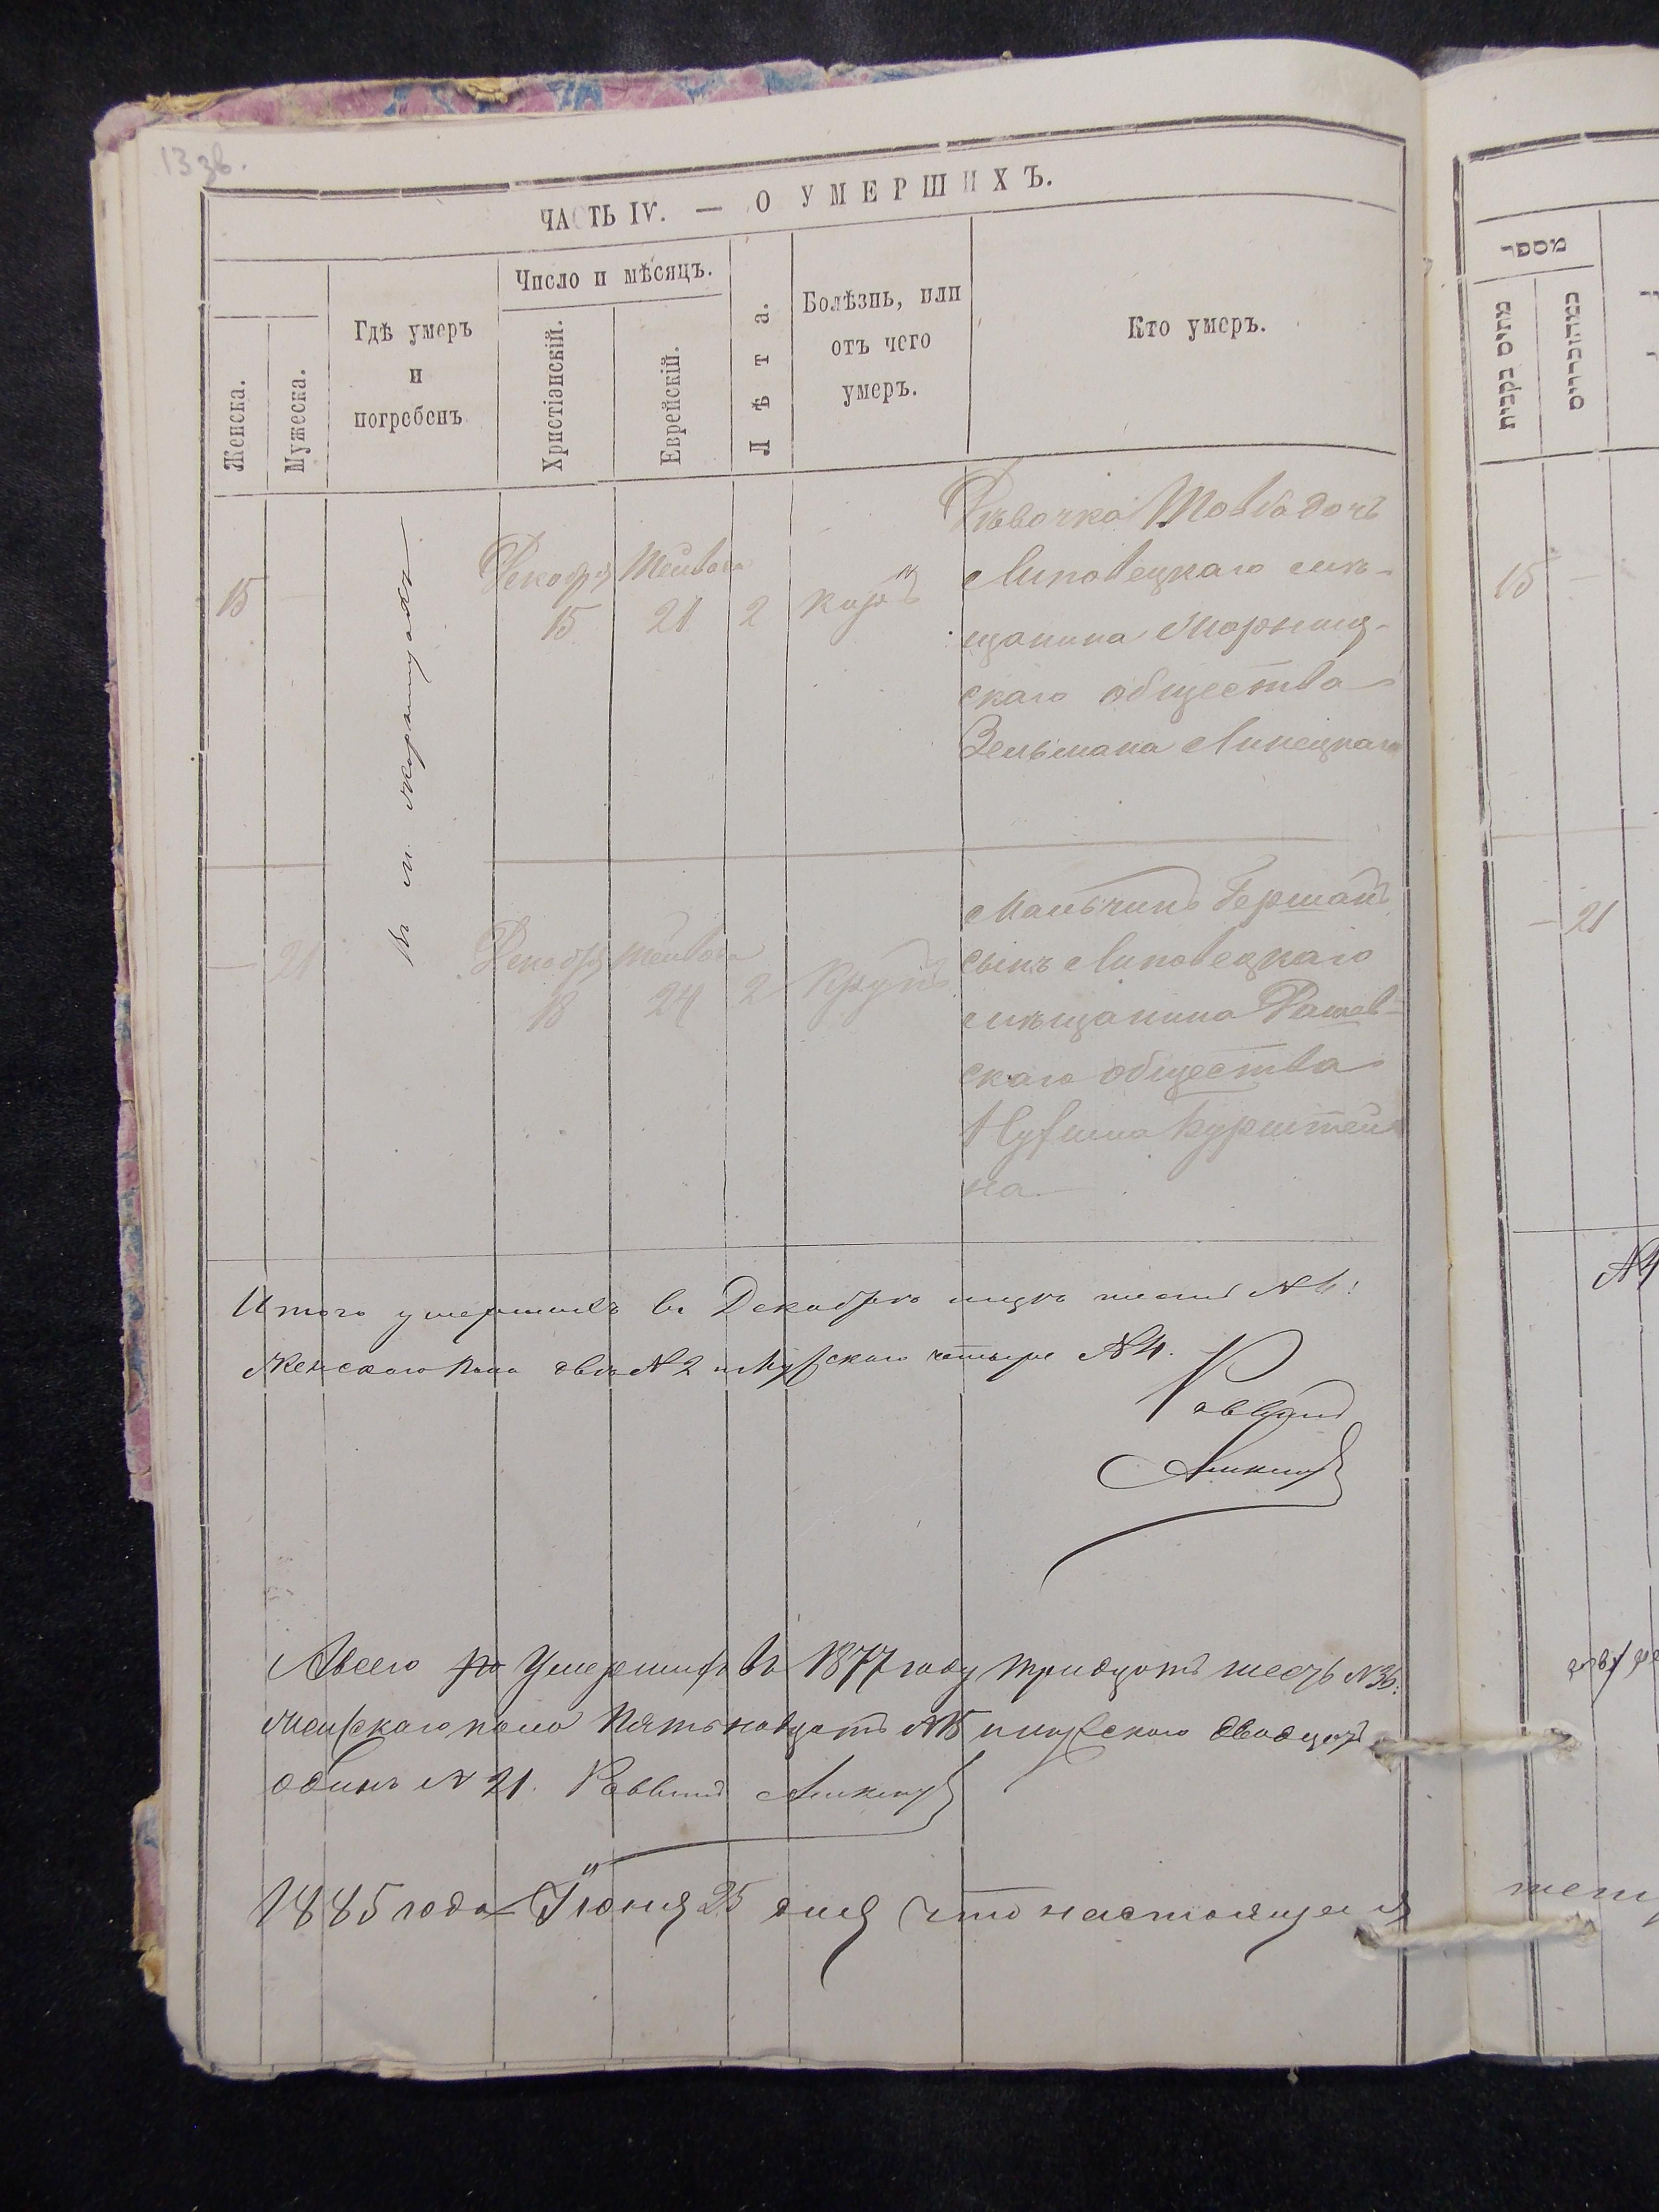 13 зв.
ЧАСТЬ IV. — О УМЕРШИХЪ.
Женска.
Мужеска.
Гдѣ умеръ
и
погребенъ
Число и мѣсяцъ.
Христіянскій.
Еврейскій.
Лѣта.
Болѣзнь, или
отъ чего
умеръ.
Кто умеръ.
15
—
Въ м.
Декабря
15
Тейвеса
21
2
корь
Дѣвочка Товба дочь
Липовецкаго мѣ-
щанина
скаго общества
Зельмана Липецкаго
—
21
Декабря
18
Тейвеса
24
2
Крупъ
Мальчикъ Гершонъ
сынъ Липовецкаго
мѣщанина Дашев-
скаго общества
Нухима Курштей
на
Итого умершихъ въ Декабрѣ мцѣ шесть №
Женскаго пола двѣ № 2 и Мужскаго четыре № 4.
Раввинъ
А всего по Умершихъ въ 1877 году тридцать шесть № 36:
Женскаго пола Пятьнадцать № 15 и мужскаго двадцать
одинъ № 21. Раввинъ
1885 года Іюня 25 дня что настоящая
מספר
מתים נקבות
כמהזכרים
15 —
— 21